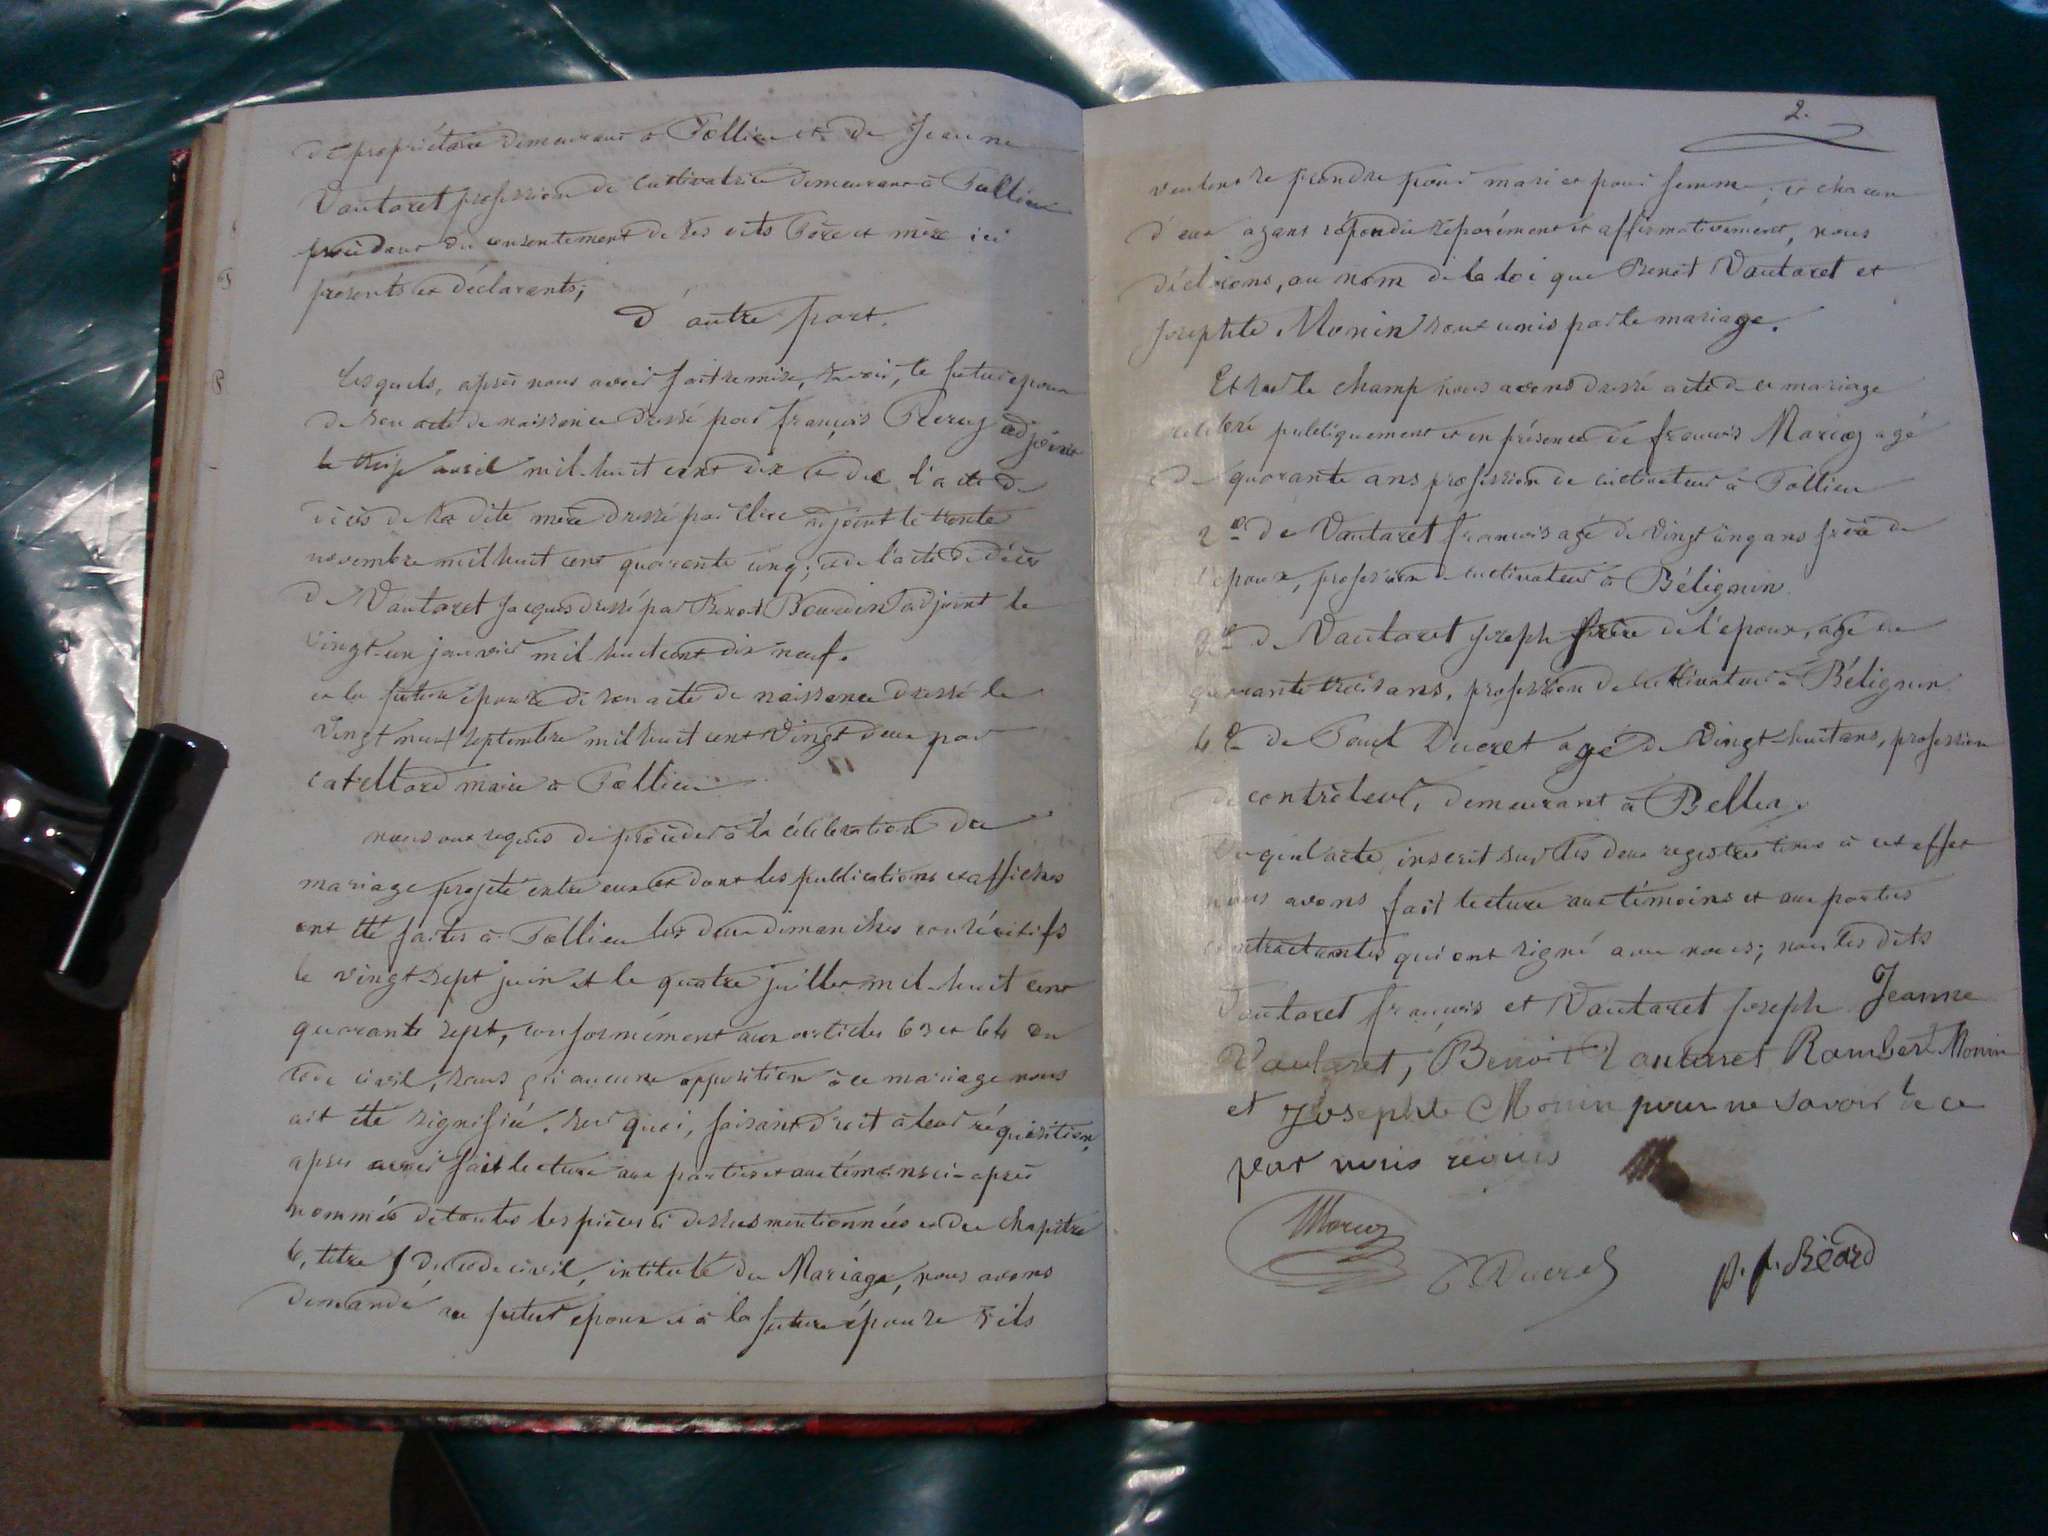 de propriétaire demeurant à Pollieu et de Jeanne
Vautaret profession de cultivatrice demeurant à Pollieu
procédant du consentement de ses dits Père et mère ici
présents et déclarants;
d'autre part.
lesquels, après nous avoir fait remise, savoir, le futur époux
de son acte de naissance dressé par françois adjoint
le avril mil-huit cent dix & de l'acte de
décès de sa dite mère dressé par adjoint le trente
novembre mil huit cent quarante cinq; & de l'acte de décès
de Vautaret Jacques dressé par Benoit Bourdin adjoint le
vingt-un janvier mil-huit cent dix neuf.
et la future épouse de son acte de naissance dressé le
vingt neuf septembre mil huit cent vingt deux par
Catellard maire à Pollieu
nous ont requis de procéder à la célébration du
mariage projeté entre eux et dont les publications et affiches
ont été faites à Pollieu les deux dimanches consécutifs
le vingt-sept juin et le quatre juillet mil-huit cent
quarante sept, conformément aux articles 63 et 64 du
Code civil, sans qu'aucune opposition à ce mariage nous
ait été signifiée. Sur quoi, faisant droit à leur réquisition,
après avoir fait lecture aux parties et aux témoins ci-après
nommés de toutes les pièces ci dessus mentionnées et du chapitre
6, titre 5 du code civil, intitulé du Mariage, nous avons
demandé au futur époux et à la future épouse s'ils
2.
veulent se prendre pour mari et pour femme; et chacun
d'eux ayant répondu séparément et affirmativement, nous
déclarons, au nom de la loi que Benoit Vautaret et
Josephte Monin sont unis par le mariage.
Et sur le champ nous avons dressé acte de ce mariage
célébré publiquement et en présence de françois Marcoz agé
de quarante ans profession de cultivateur à Pollieu
2º de Vautaret françois agé de vingt cinq ans frère de
l'époux, profession de cultivateur à Bélignin
3º de Vautaret Joseph frère de l'époux, agé de
quarante trois ans, profession de cultivateur à Bélignin
4º de Paul Ducret agé de vingt-huit ans, profession
de contrôleur, demeurant à Belley.
Du quel acte inscrit sur les deux registres tenus à cet effet
nous avons fait lecture aux témoins et aux parties
contractantes qui ont signé avec nous; non les dits
Vautaret françois et Vautaret Joseph Jeanne
Vautaret, Benoit Vautaret Rambert Monin
et Josephte Monin pour ne savoir de ce
par nous réquis
Marcoz
P Ducret
P. f. Béard